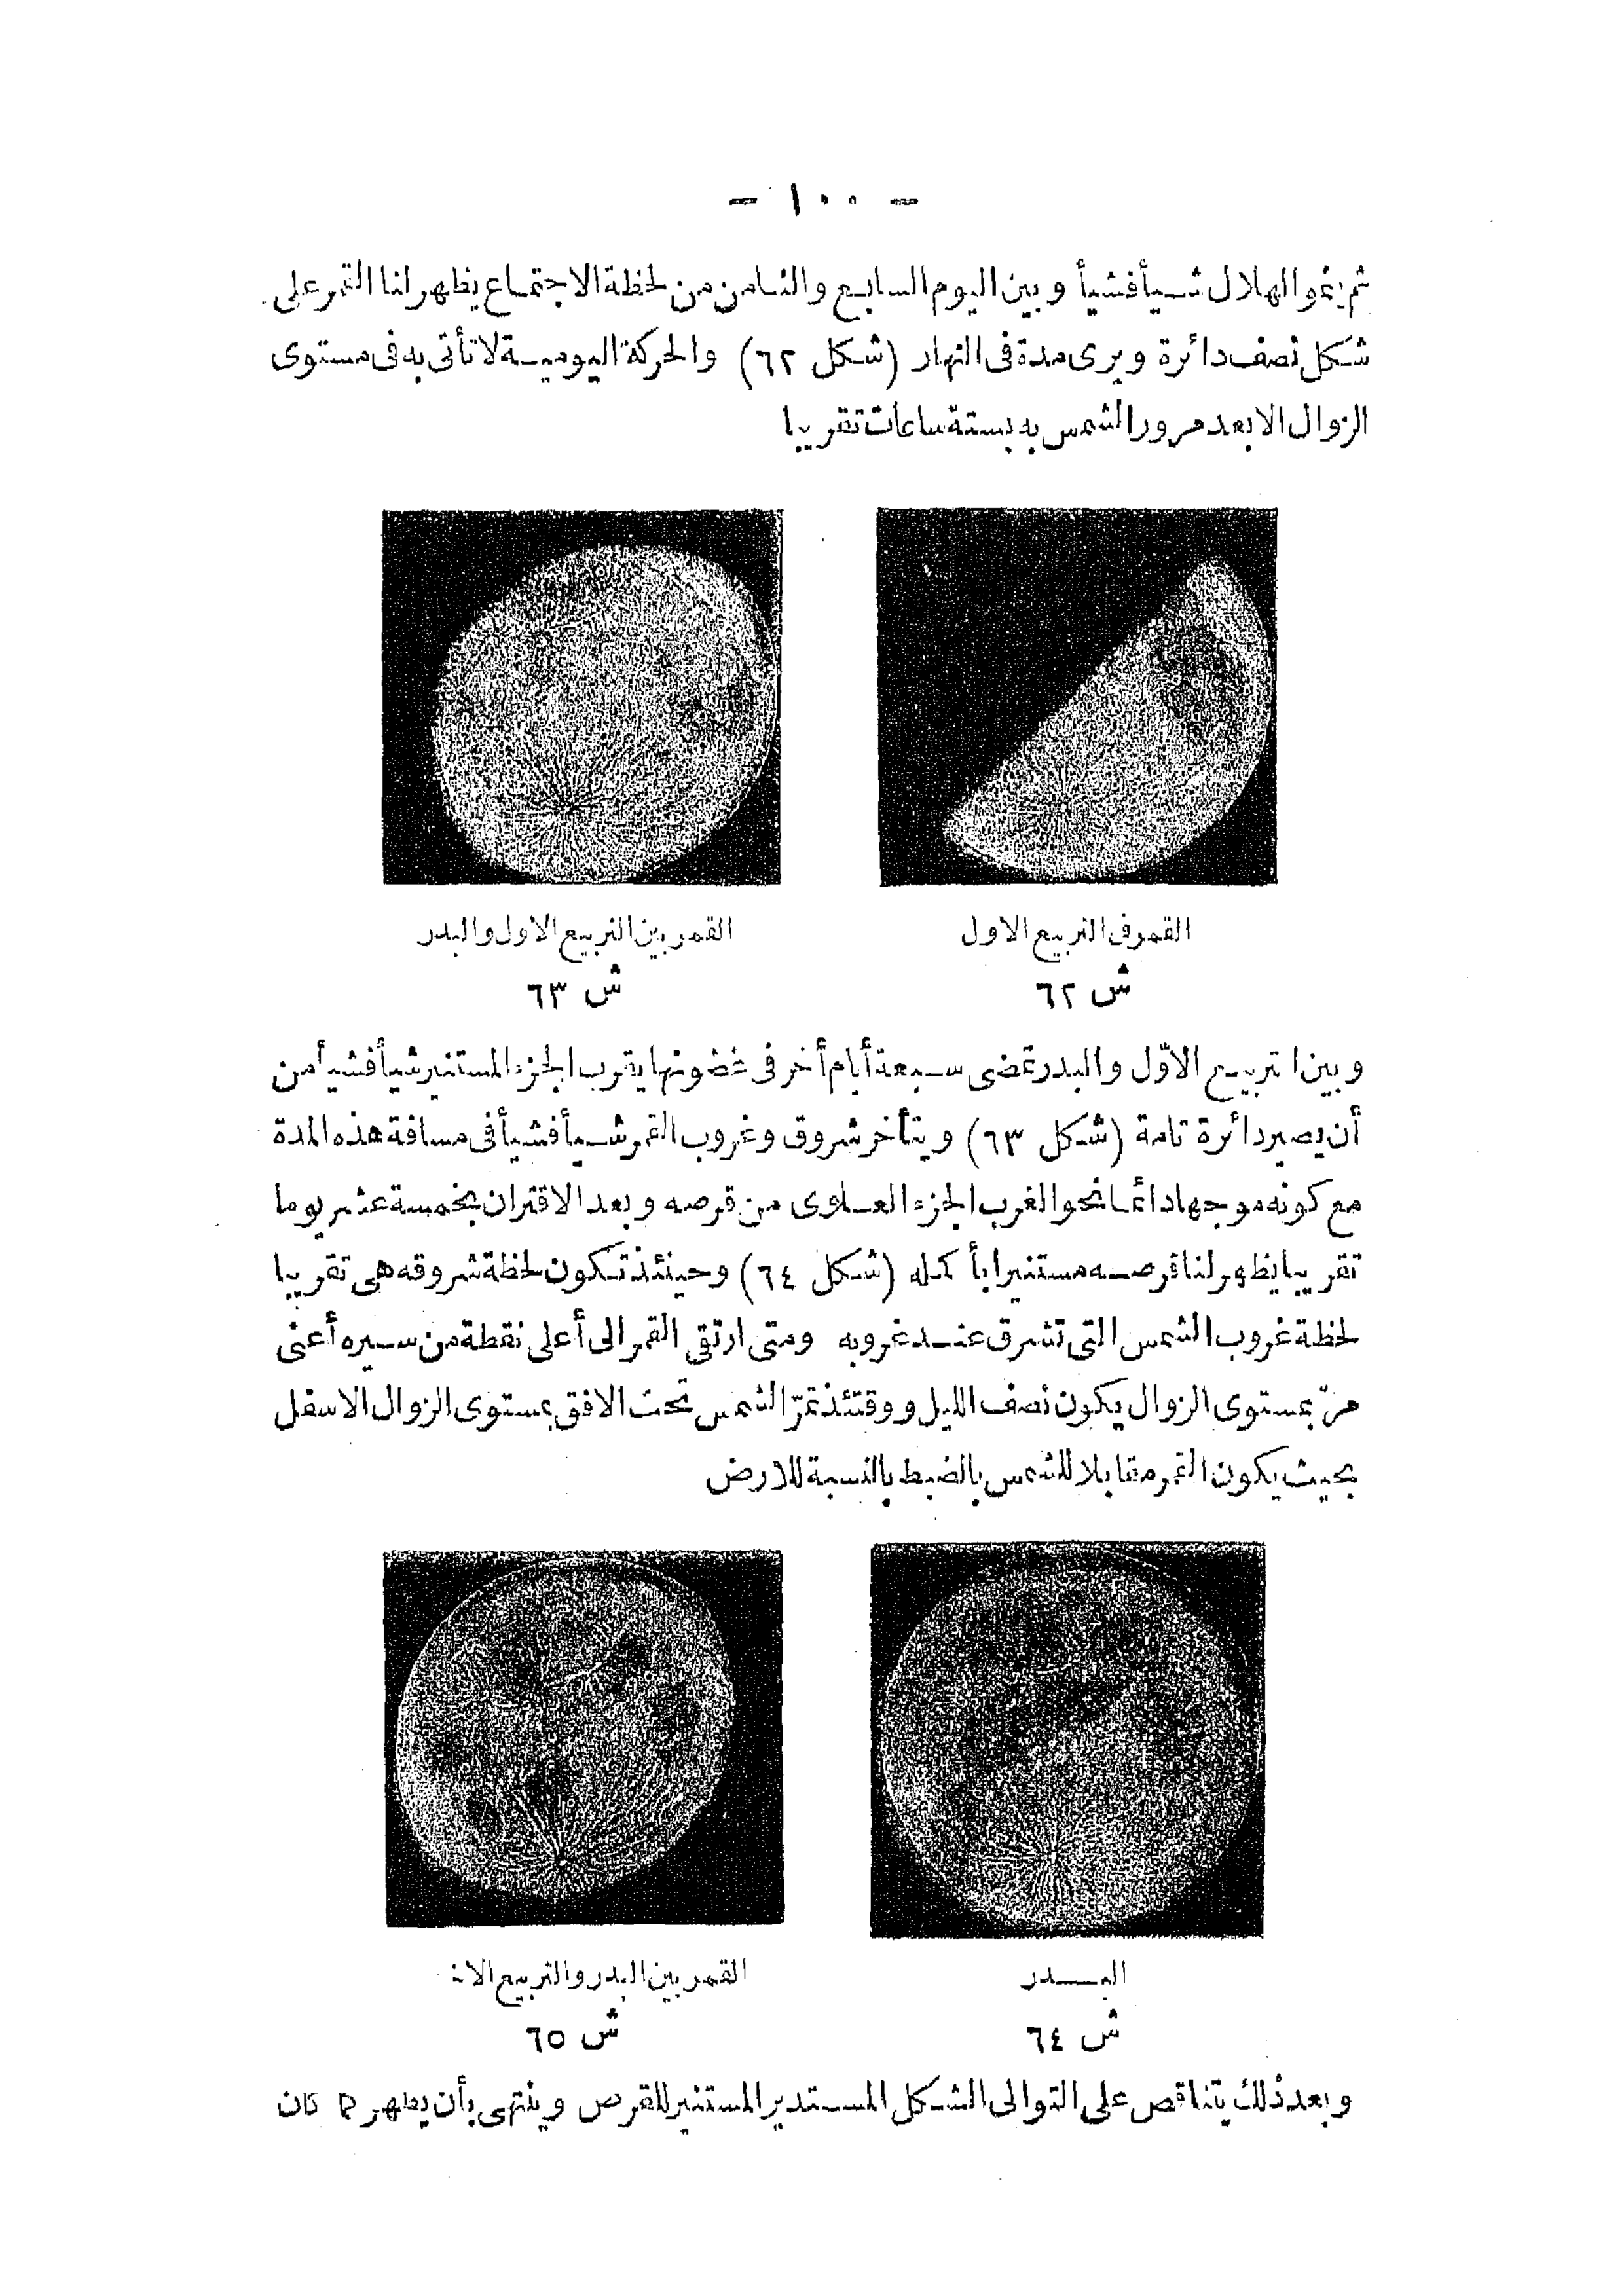 - ١٠٠ -
ثم ينمو الهلال شيأ فشيأ وبين اليوم السابع والثامن من لحظة الاجتماع يظهر لنا القمر على
شكل نصف دائرة ويرى مدة فى النهار (شكل ٦٢) والحركة اليومية لا تأتى به فى مستوى
الزوال الا بعد مرور الشمس به بستة ساعات تقريبا
القمر فى التربيع الاول
ش ٦٢
القمر بين التربيع الاول والبدر
ش ٦٣
وبين ا تربيع الاوّل والبدر تمضى سبعة أيام أخر فى غضونها يقرب الجزء المستنير شيأ فشيأ من
أن يصير دائرة تامة (شكل ٦٣) ويتأخر شروق وغروب القمر شيأ فشيأ فى مسافة هذه المدة
مع كونه موجها دائما نحو الغرب الجزء العلوى من قرصه وبعد الاقتران بخمسة عشر يوما
تقريبا يظهر لنا قرصه مستنيرا بأكمله (شكل ٦٤) وحينئذ تكون لحظة شروقه هى تقريبا
لحظة غروب الشمس التى تشرق عند غروبه ومتى ارتقى القمر الى أعلى نقطة من سيره أعنى
مرّ بمستوى الزوال يكون نصف الليل ووقتئذ تمرّ الشمس تحت الافق بمستوى الزوال الاسفل
بحيث يكون القمر مقابلا للشمس بالضبط بالنسبة للارض
البدر
ش ٦٤
القمر بين البدر والتربيع
ش ٦٥
وبعد ذلك يتناقص على التوالى الشكل المستدير المستنير للقرص وينتهى بأن يظهر كما كان